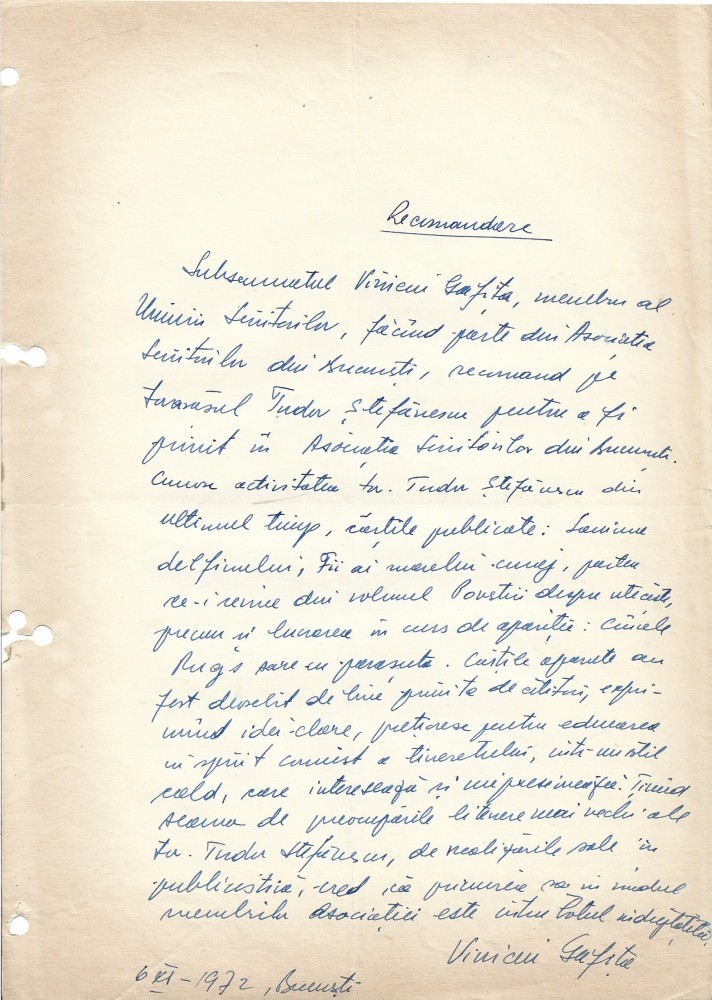 Recomandare
Subsemnatul Viniciu Gafița, membru al
Uniunii Scriitorilor, făcînd parte din Asociația
Scriitorilor din București, recomand pe
tovarășul Tudor Ștefănescu pentru a fi
primit în Asociația Scriitorilor din București.
Cunosc activitatea tov. Tudor Ștefănescu din
ultimul timp, cărțile publicate:
delfinului, Fii ai marelui curaj, partea
ce-i revine din volumul Povestiri despre uteciști,
precum și lucrarea în curs de apariție: Cîinele
Rugs sare cu parașuta. Cărțile apărute au
fost deosebit de bine primite de cititori, expri-
mînd idei clare, prețioase pentru educarea
în spirit comunist a tineretului, într-un stil
cald, care interesează și impresionează. Ținînd
seama de preocupările literare mai vechi ale
tov. Tudor Ștefănescu, de realizările sale în
publicistică, cred că primirea sa în rîndul
membrilor Asociației este întru totul îndreptățită.
Viniciu Gafița
6 XI - 1972, București